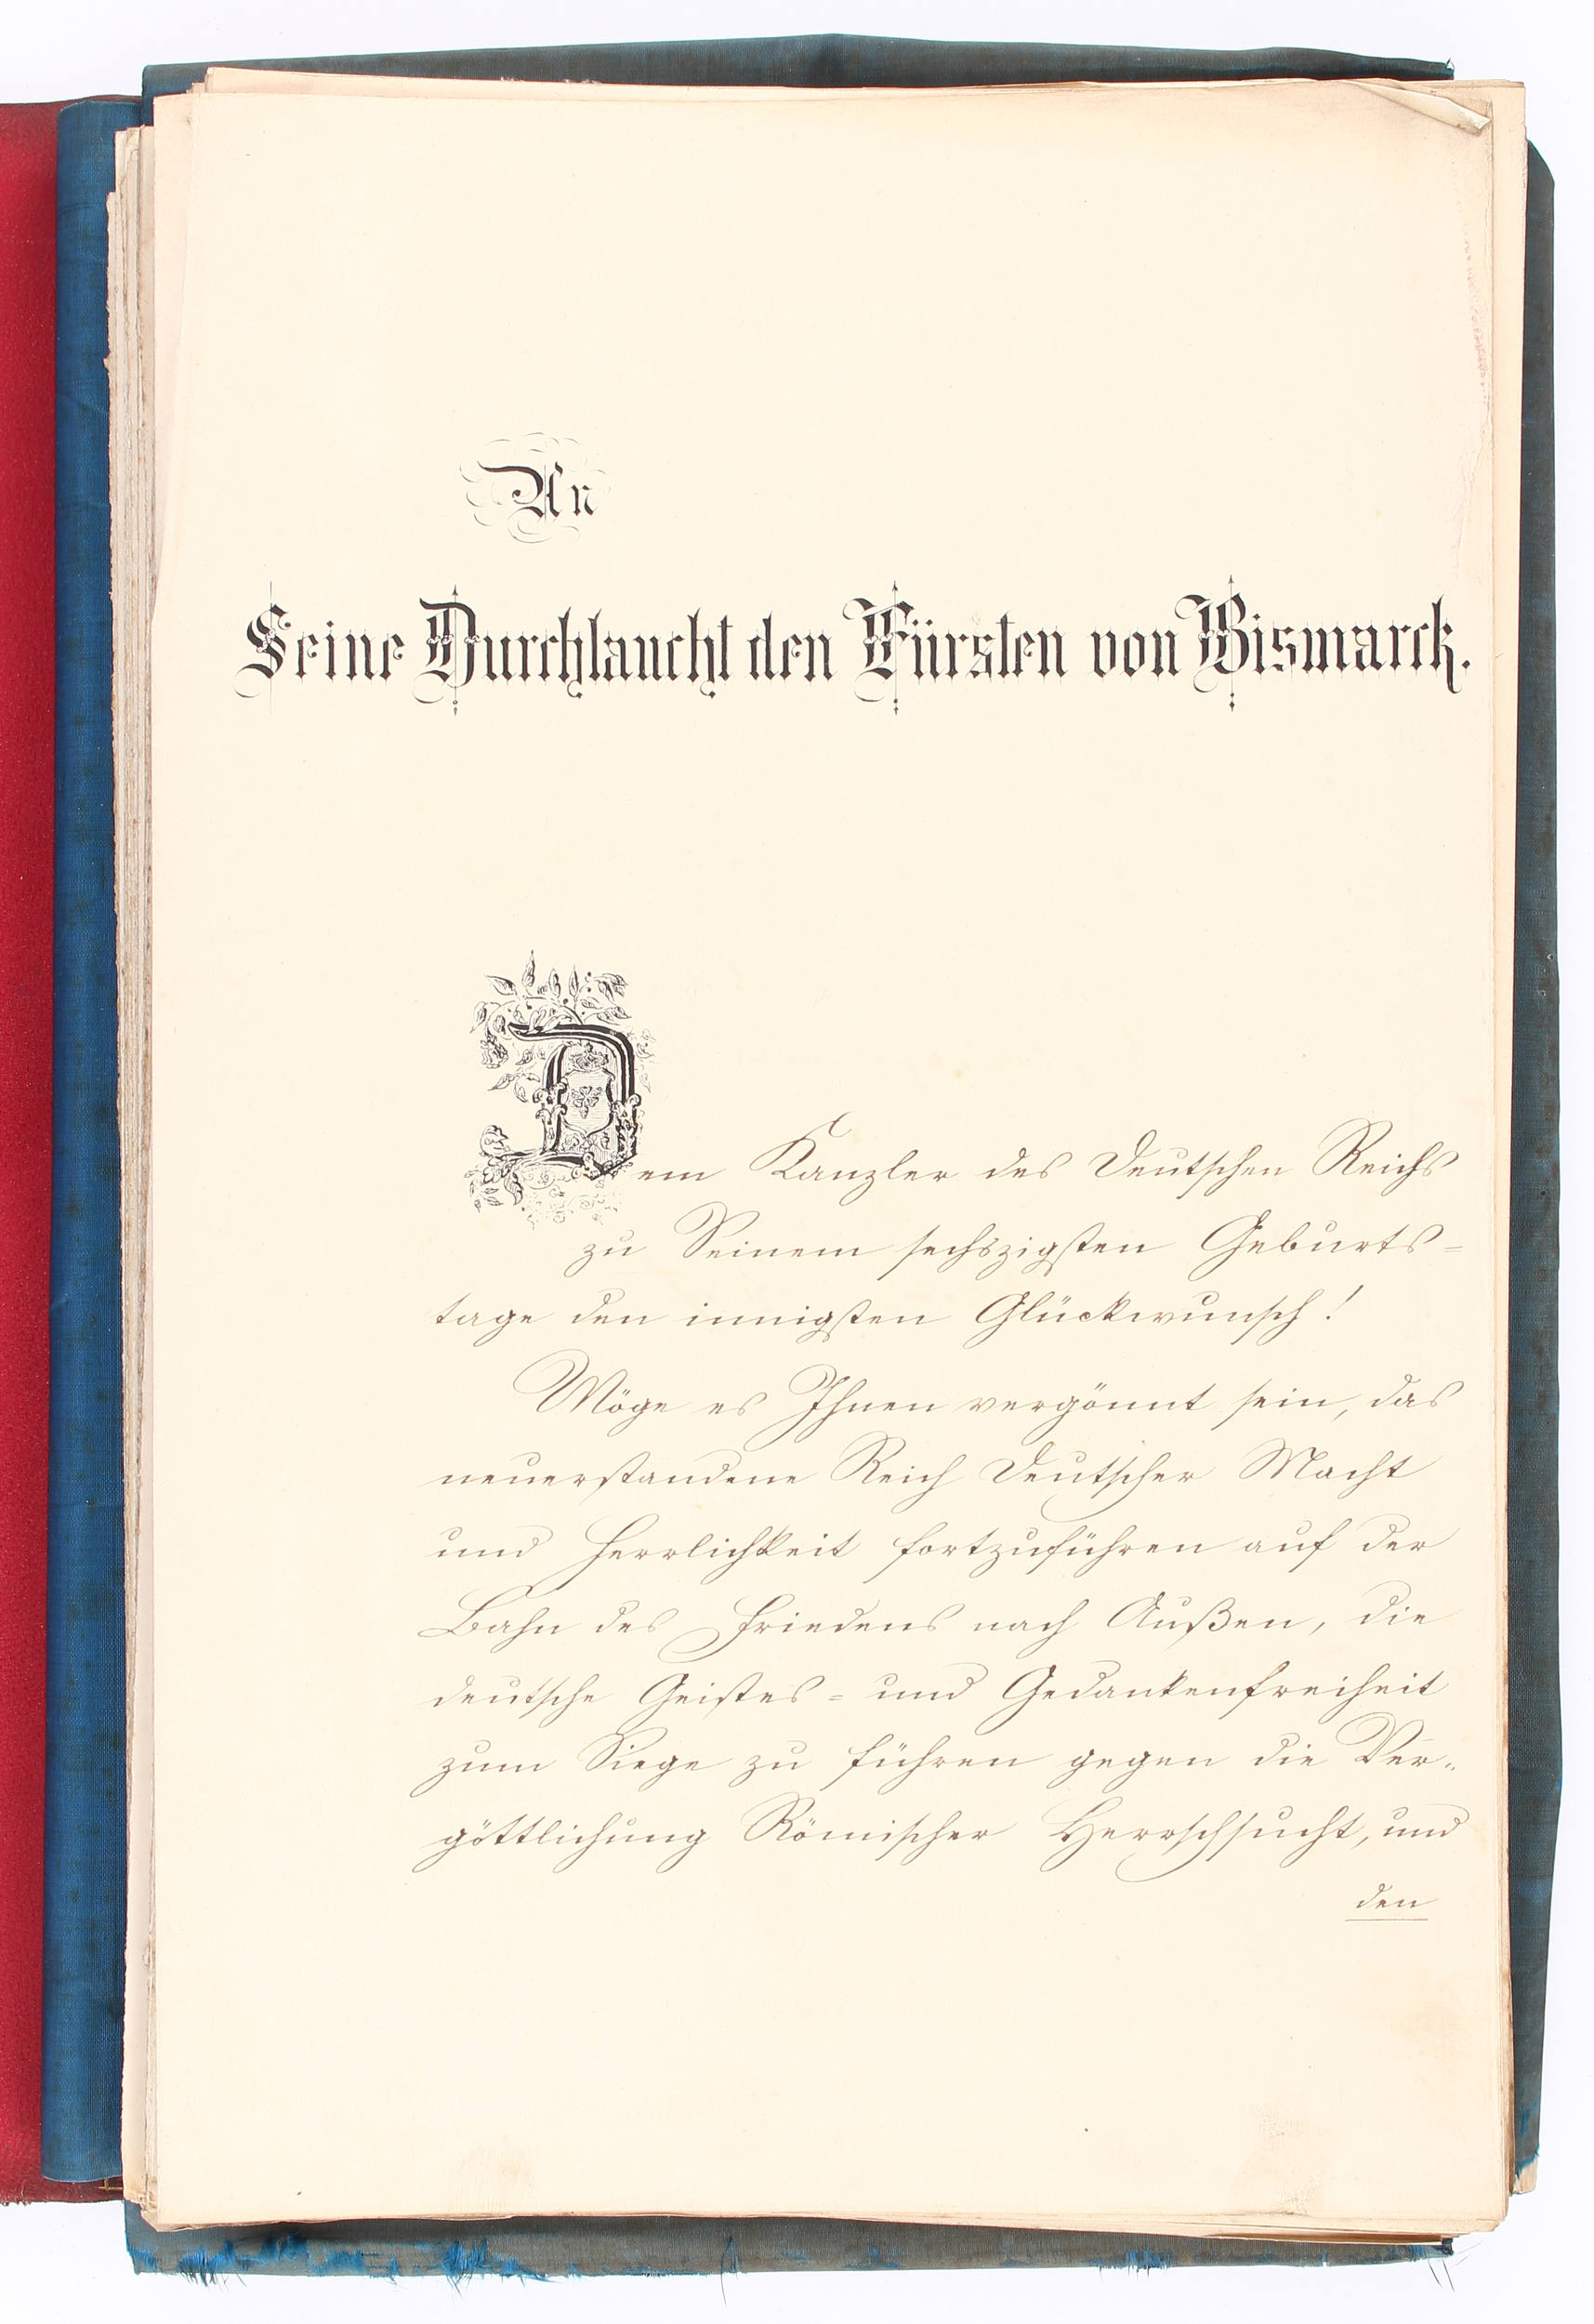 An
Seine Durchlaucht den Fürsten von Bismarck.
Dem Kanzler des Deutschen Reichs
zu Seinem sechszigsten Geburts=
tage den innigsten Glückwunsch!
Möge es Ihnen vergönnt sein, das
neuerstandene Reich Deutscher Macht
und Herrlichkeit fortzuführen auf der
Bahn des Friedens nach Außen, die
deutsche Geistes= und Gedankenfreiheit
zum Siege zu führen gegen die Ver=
göttlichung Römischer Herrschsucht, und
den